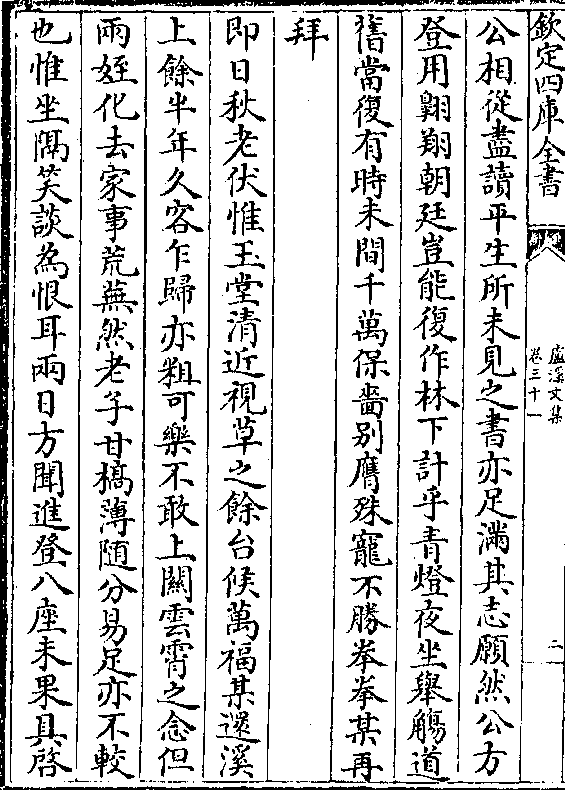 欽定四庫全書
盧溪文集
卷三十一
二
公相從盡讀平生所未見之書亦足滿其志願然公方
登用翺翔朝廷豈能復作林下計乎青燈夜坐舉觴道
舊當復有時未間千萬保嗇别膺殊寵不勝拳拳某再
拜
即日秋老伏惟玉堂清近視草之餘台候萬福某還溪
上餘半年久客乍歸亦粗可樂不敢上關雲霄之念但
兩姪化去家事荒蕪然老子甘槁薄随分易足亦不較
也惟坐隔笑談為恨耳兩日方聞進登八座未果具啓